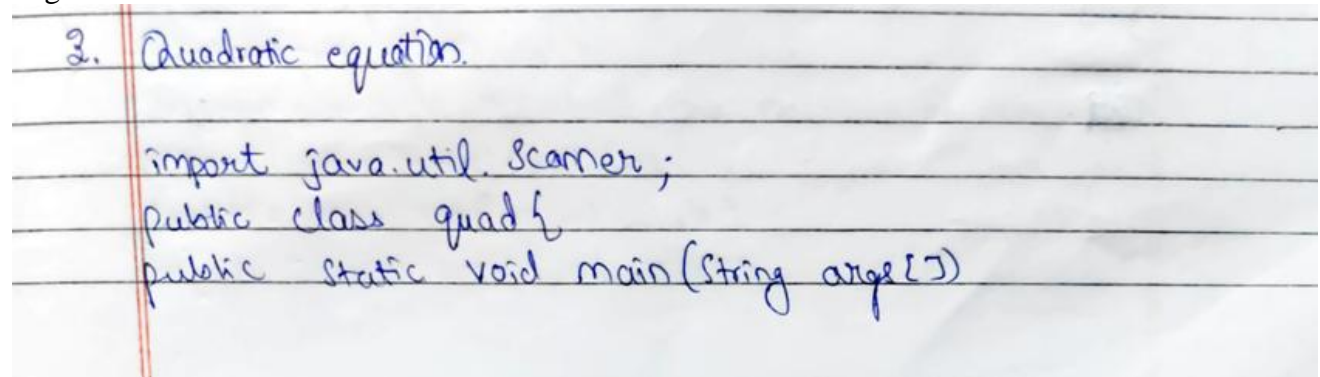 3. Quadratic equation.
import java.util.Scanner;
public class quad{
public static void main(String args[])